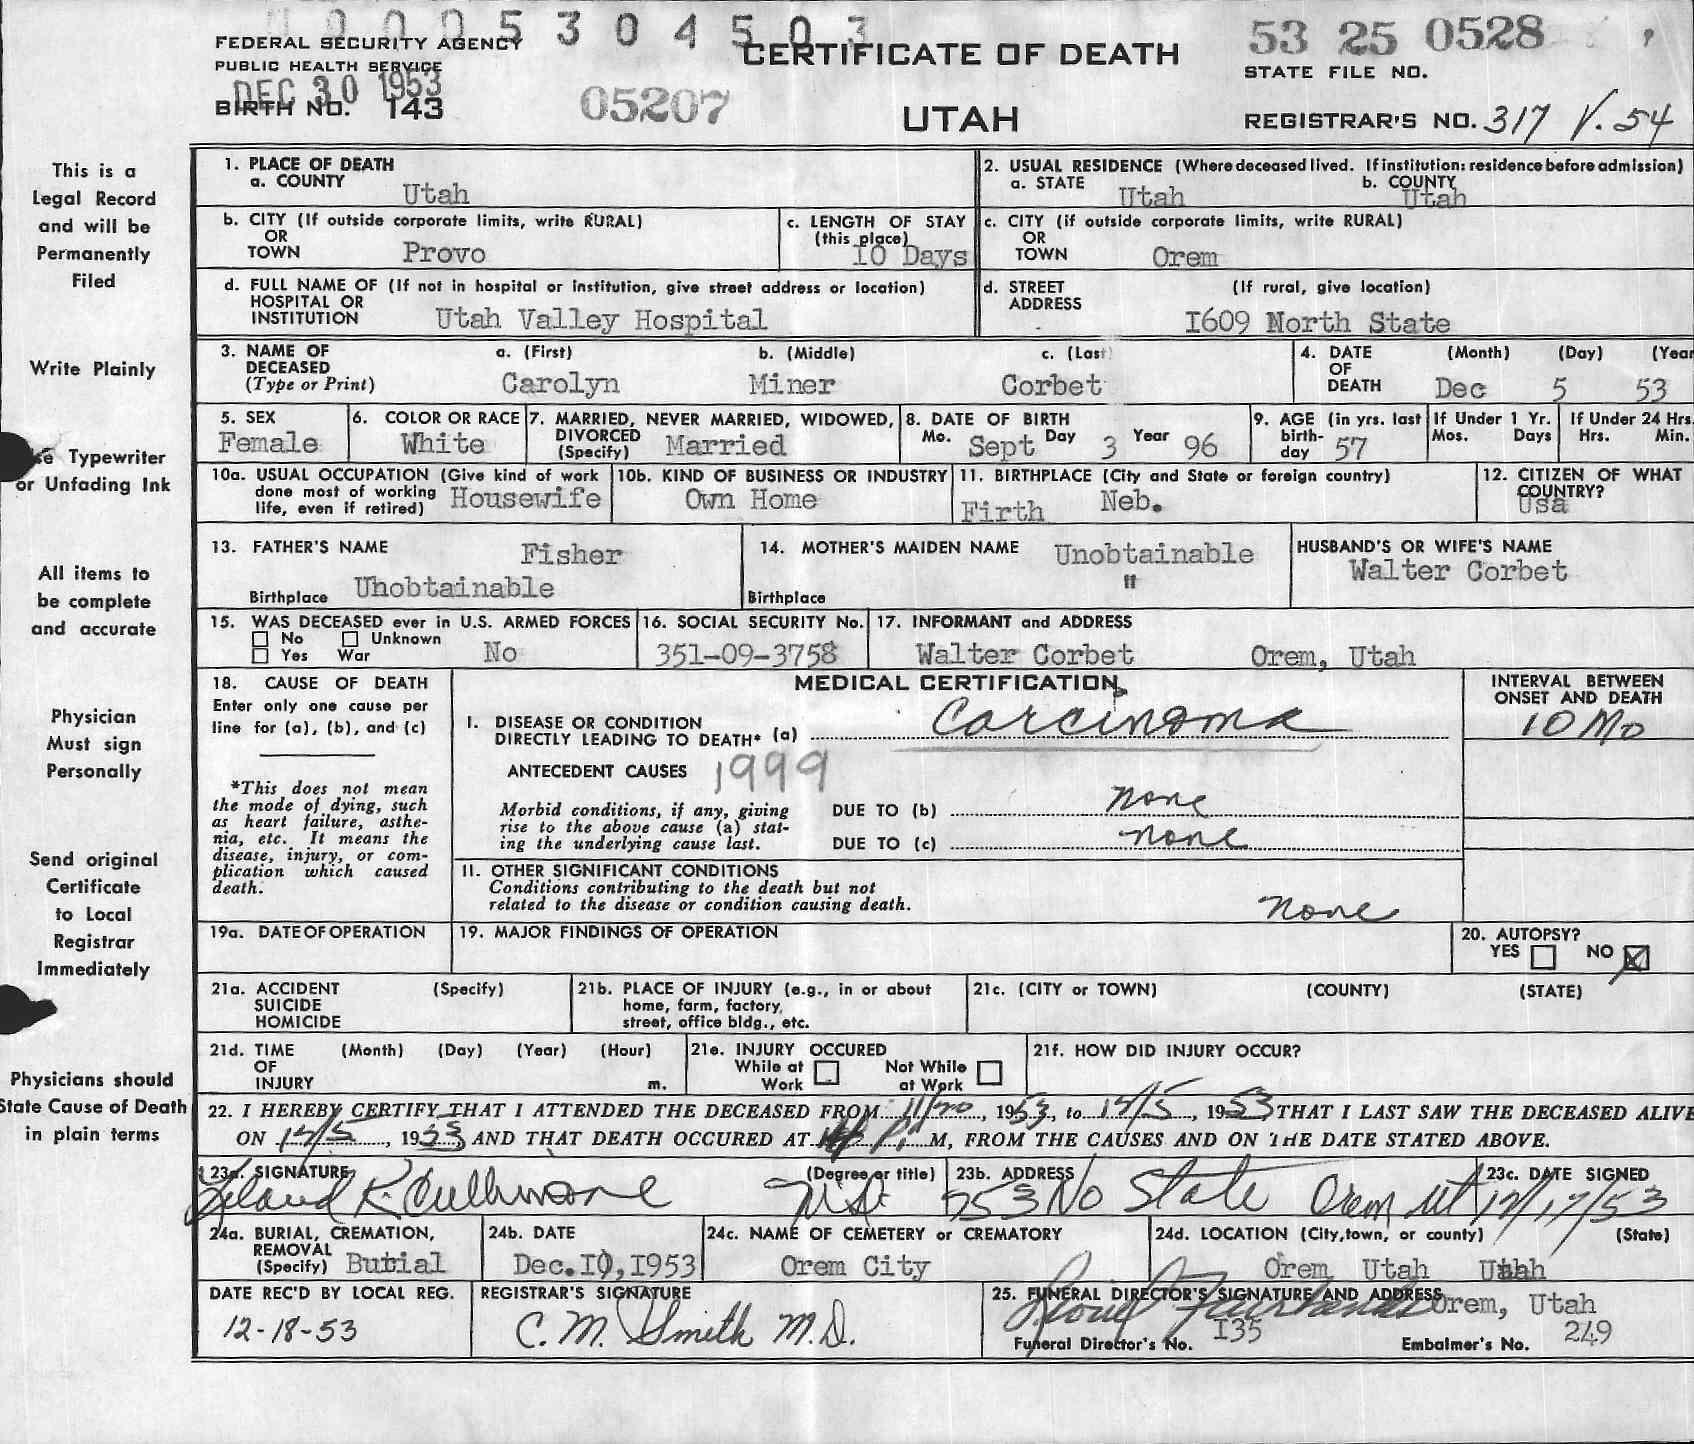 0 0 0 5 3 0 4 5 0 3
FEDERAL SECURITY AGENCY
PUBLIC HEALTH SERVICE
DEC 30 1953
BIRTH NO. 143
05207
CERTIFICATE OF DEATH
UTAH
53 25 0528
STATE FILE NO.
REGISTRAR'S NO. 317 V. 54
This is a
Legal Record
and will be
Permanently
Filed
Write Plainly
Typewriter
or Unfading Ink
All items to
be complete
and accurate
Physician
Must sign
Personally
Send original
Certificate
to Local
Registrar
Immediately
Physicians should
State Cause of Death
in plain terms
1. PLACE OF DEATH
a. COUNTY Utah
2. USUAL RESIDENCE (Where deceased lived. If institution: residence before admission)
a. STATE Utah b. COUNTY Utah
b. CITY (If outside corporate limits, write RURAL)
OR
TOWN Provo
c. LENGTH OF STAY
(this place)
10 Days
c. CITY (if outside corporate limits, write RURAL)
OR
TOWN Orem
d. FULL NAME OF (If not in hospital or institution, give street address or location)
HOSPITAL OR
INSTITUTION Utah Valley Hospital
d. STREET (If rural, give location)
ADDRESS
I609 North State
3. NAME OF a. (First) b. (Middle) c. (Last)
DECEASED
(Type or Print) Carolyn Miner Corbet
4. DATE (Month) (Day) (Year
OF
DEATH Dec 5 53
5. SEX
Female
6. COLOR OR RACE
White
7. MARRIED, NEVER MARRIED, WIDOWED,
DIVORCED
(Specify) Married
8. DATE OF BIRTH
Mo. Sept Day 3 Year 96
9. AGE (in yrs. last
birth-
day 57
If Under 1 Yr.
Mos. Days
If Under 24 Hrs.
Hrs. Min.
10a. USUAL OCCUPATION (Give kind of work
done most of working
life, even if retired) Housewife
10b. KIND OF BUSINESS OR INDUSTRY
Own Home
11. BIRTHPLACE (City and State or foreign country)
Firth Neb.
12. CITIZEN OF WHAT
COUNTRY?
Usa
13. FATHER'S NAME Fisher
Birthplace Unobtainable
14. MOTHER'S MAIDEN NAME Unobtainable
Birthplace "
HUSBAND'S OR WIFE'S NAME
Walter Corbet
15. WAS DECEASED ever in U.S. ARMED FORCES
No Unknown
Yes War No
16. SOCIAL SECURITY No.
351-09-3758
17. INFORMANT and ADDRESS
Walter Corbet Orem, Utah
18. CAUSE OF DEATH
Enter only one cause per
line for (a), (b), and (c)
*This does not mean
the mode of dying, such
as heart failure, asthe-
nia, etc. It means the
disease, injury, or com-
plication which caused
death.
MEDICAL CERTIFICATION
I. DISEASE OR CONDITION
DIRECTLY LEADING TO DEATH* (a) Carcinoma
ANTECEDENT CAUSES 1999
Morbid conditions, if any, giving
rise to the above cause (a) stat-
ing the underlying cause last.
DUE TO (b) none
DUE TO (c) none
INTERVAL BETWEEN
ONSET AND DEATH
10 Mo
II. OTHER SIGNIFICANT CONDITIONS
Conditions contributing to the death but not
related to the disease or condition causing death.
none
19a. DATE OF OPERATION
19. MAJOR FINDINGS OF OPERATION
20. AUTOPSY?
YES NO X
21a. ACCIDENT (Specify)
SUICIDE
HOMICIDE
21b. PLACE OF INJURY (e.g., in or about
home, farm, factory,
street, office bldg., etc.
21c. (CITY or TOWN) (COUNTY) (STATE)
21d. TIME (Month) (Day) (Year) (Hour)
OF
INJURY m.
21e. INJURY OCCURED
While at Not While
Work at Work
21f. HOW DID INJURY OCCUR?
22. I HEREBY CERTIFY THAT I ATTENDED THE DECEASED FROM 11/20, 1953, to 12/5, 1953 THAT I LAST SAW THE DECEASED ALIVE
ON 12/5, 1953 AND THAT DEATH OCCURED AT M, FROM THE CAUSES AND ON THE DATE STATED ABOVE.
23a. SIGNATURE (Degree or title)
Leland K. Cullimore M.D.
23b. ADDRESS
753 No State Orem Ut
23c. DATE SIGNED
12/17/53
24a. BURIAL, CREMATION,
REMOVAL
(Specify) Burial
24b. DATE
Dec.I0,I953
24c. NAME OF CEMETERY or CREMATORY
Orem City
24d. LOCATION (City, town, or county) (State)
Orem Utah Utah
DATE REC'D BY LOCAL REG.
12-18-53
REGISTRAR'S SIGNATURE
C. M. Smith M.D.
25. FUNERAL DIRECTOR'S SIGNATURE AND ADDRESS
Orem, Utah
Funeral Director's No. I35
Embalmer's No. 249